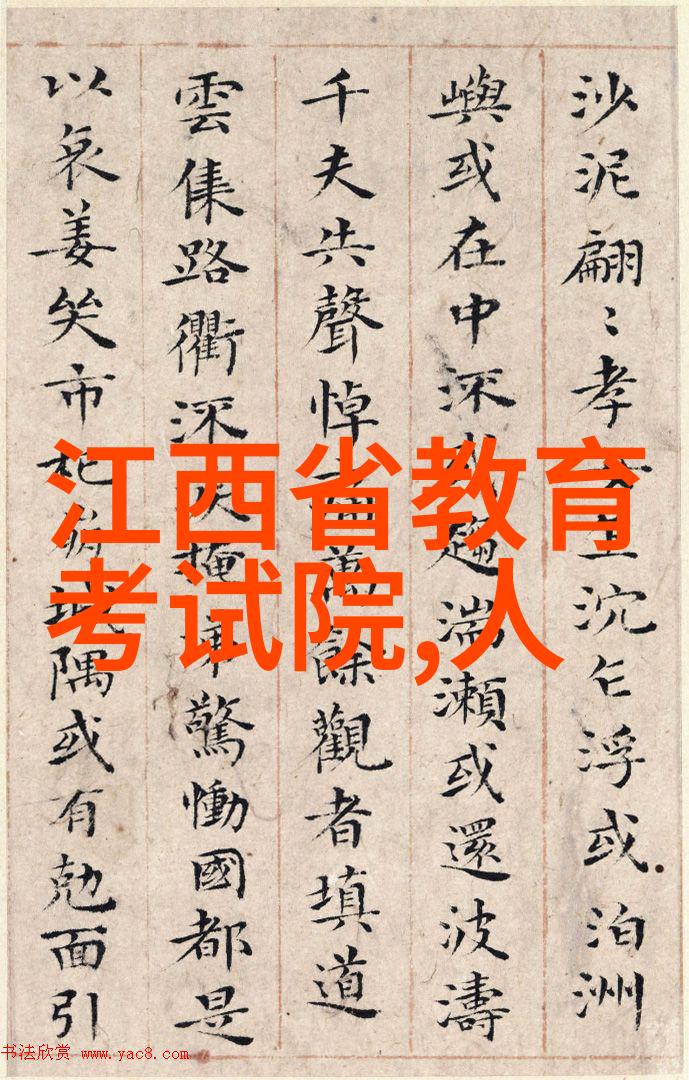 沙泥翩〻孝女沉乍浮或泊洲
嶼或在中深或趨湍瀨或還波濤
千夫共聲悼痛萬餘觀者填道
雲集路衢深淚掩涕驚慟國都是
以哀姜哭市杞崩城隅或有勀面引
江西省教育
考试院,人
书法欣赏 www.yac8.com